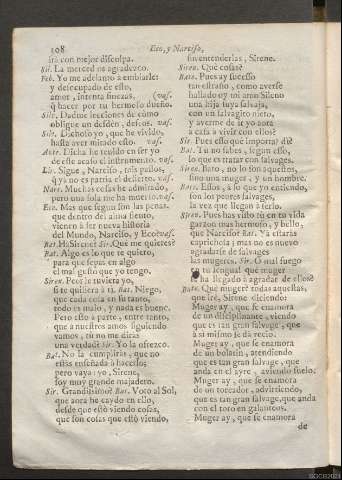 108
Eco, y Narciso,
irà con mejor disculpa.
Sil. La merced os agradezco.
Feb. Yo me adelanto à embiarle:
y desocupado de esto,
amor, intenta finezas. (vase.
q̃ hacer por tu hermoso dueño.
Silv. Dadme lecciones de còmo
obligue un desdèn, deseos. vase.
Silv. Dichoso yo, que he vivido,
hasta aver mirado esto. vase.
Ante. Dicha he tenido en ser yo
de este acaso el instrumento. vase.
Lir. Sigue, Narciso, mis passos,
q̃ yà no es patria el desierto. vase.
Narc. Muchas cosas he admirado,
pero una sola me ha muerto. vase.
Eco. Mas que segun son las penas,
que dentro del alma siento,
vienen à ser nueva historia
del Mundo, Narciso, y Eco? vase.
Bat. Ha Sirene? Sir. Què me quieres?
Bat. Algo es lo que te quiero,
para que sepas en algo
el mal gusto que yo tengo.
Siren. Pues le tuviera yo,
si te quisiera à ti. Bat. Niego,
que cada cosa en su tanto,
todo es malo, y nada es bueno.
Pero esto à parte, entre tanto,
que à nuestros amos siguiendo
vamos, tù no me diràs
una verdad? Sir. Yo la ofrezco.
Bat. No la cumpliràs, que no
estàs enseñada à hacerlo;
pero vaya: yo, Sirene,
soy muy grande majadero.
Sir. Grandissimo? Bat. Voto al Sol,
que aora he caydo en ello,
desde que estò viendo cosas,
que son cosas que estò viendo,
sin entenderlas, Sirene.
Siren. Què cosas?
Bato. Pues ay sucesso
tan estraño, como averse
hallado oy mi amo Sileno
una hija suya salvaja,
con un salvagito nieto,
y averme de ir yo aora
à casa à vivir con ellos?
Sir. Pues esso què importa? di?
Bat. Tù no sabes, segun esso,
lo que es tratar con salvages.
Siren. Bato, no lo son aquestos,
sino una muger, y un hombre.
Bato. Essos, à lo que yo entiendo,
son los peores salvajes,
la vez que llegan à serlo.
Siren. Pues has visto tù en tu vida
garzon mas hermoso, y bello,
que Narciso? Bat. Ya estaràs
caprichosa; mas no es nuevo
agradarse de salvages
las mugeres. Sir. O mal fuego
tu lengua! què muger
ha llegado à agradar de ellos?
Bato. Què muger? todas aquellas,
que irè, Sirene diciendo:
Muger ay, que se enamora
de un disciplinante, viendo
que es tan gran salvage, que
à sì mismo se dà recio.
Muger ay, que se enamora
de un bolatin, atendiendo
que es tan gran salvage, que
anda en el ayre, aviendo suelo.
Muger ay, que se enamora
de un toreador, advirtiendo,
que es tan gran salvage, que anda
con el toro en galanteos.
Muger ay, que se enamora
de